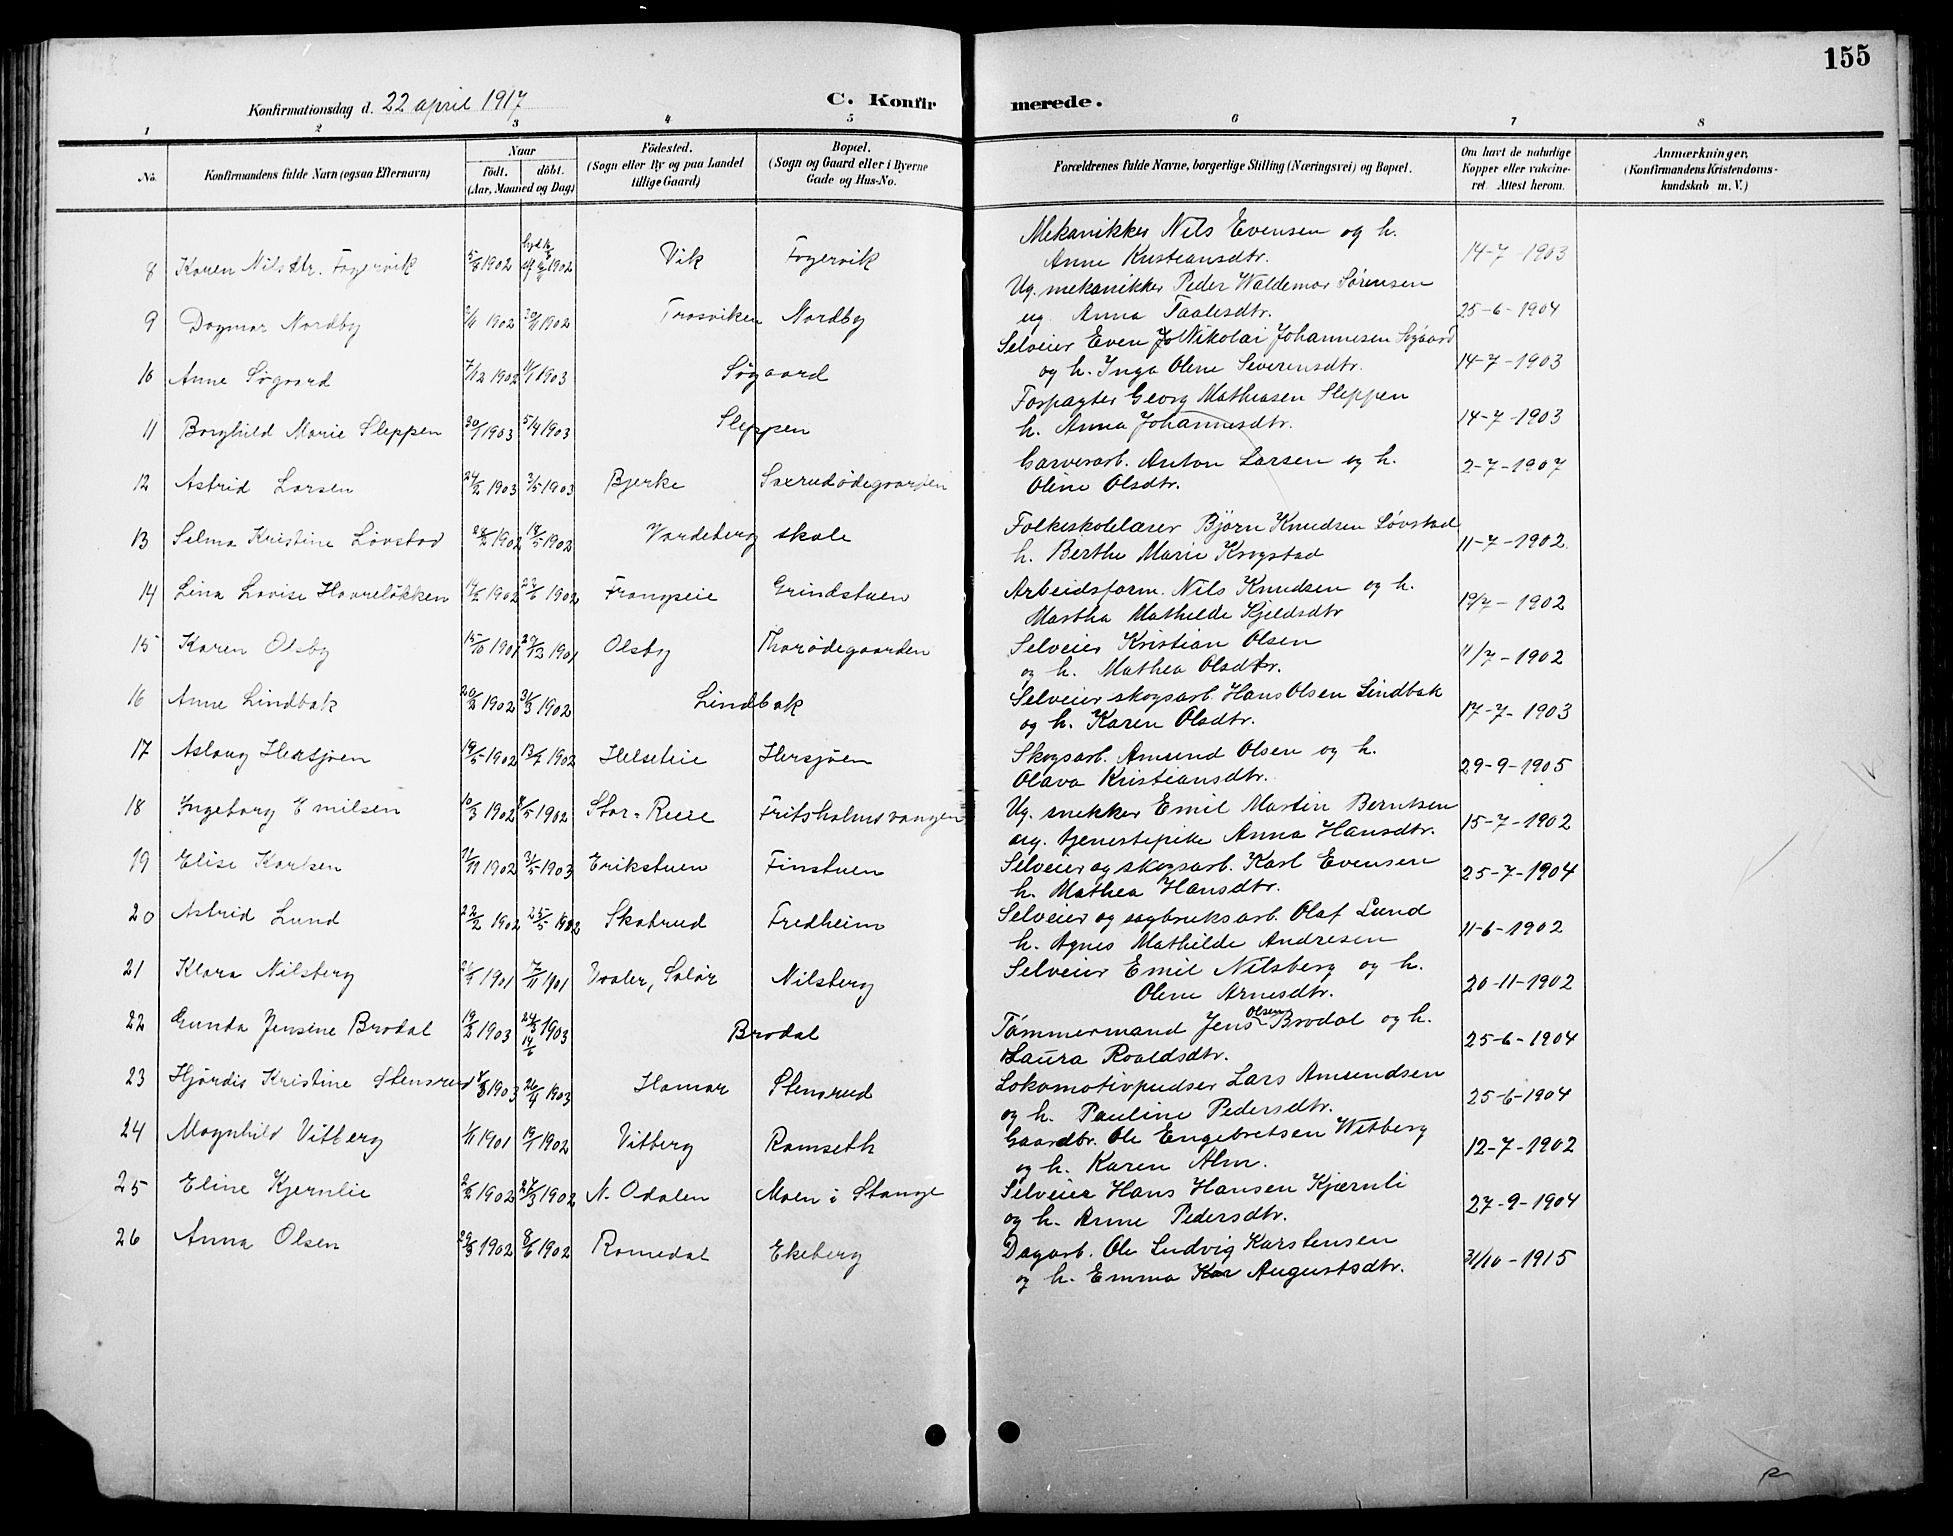 155
Konfirmationsdag d. 22 april 1917
C. Konfirmerede.
1 2 3 4 5 6 7 8
No. Konfirmandens fulde Navn (ogsaa Efternavn) Naar født. døbt. (Aar, Maaned og Dag) Fødested. (Sogn eller By og paa Landet tillige Gaard) Bopæl. (Sogn og Gaard eller i Byerne Gade og Hus-No. Forældrenes fulde Navne, borgerlige Stilling (Næringsvei) og Bopæl. Om havt de naturlige Kopper eller vakcineret. Attest herom. Anmærkninger. (Konfirmandens Kristendomskundskab m. V.)
8 Karen Nilsdtr. Fagervik 1902 1902 Vik Fagervik Mekanikker Nils Evensen og h. 14-7-1903
Anne Kristiansdtr.
9 Dagmar Nordby 1902 1902 Trosviken Nordby Ug. mekanikker Peder Waldemar Sørensen 25-6-1904
ug. Anna Taalesdtr.
10 Anne Søgaard 7/12 1902 1/1 1903 Søgaard Selveier Even Nikolai Johannesen Søgaard 14-7-1903
og h. Inga Oline Severensdtr.
11 Borghild Marie Sleppen 30/1 1903 5/4 1903 Sleppen Forpagter Georg Mathiasen Sleppen 14-7-1903
h. Anna Johannesdtr.
12 Astrid Larsen 24/2 1903 3/5 1903 Bjerke Saxrudødegaarden Garverarb. Anton Larsen og h. 2-7-1907
Oline Olsdtr.
13 Selma Kristine Løvstad 24/2 1902 18/5 1902 Vardeberg skole Folkeskolelærer Bjørn Knudsen Løvstad 11-7-1902
h. Berthe Marie Krogstad
14 Lina Lovise Haavreløkken 14/2 1902 22/6 1902 Frangseie Grindstuen Arbeidsform. Nils Knudsen og h. 19/7-1902
Martha Mathilde Kjeldsdtr
15 Karen Olsby 15/10 1901 29/12 1901 Olsby Thorødegaarden Selveier Kristian Olsen 11/7-1902
og h. Mathea Olsdtr.
16 Anne Lindbak 20/2 1902 31/3 1902 Lindbak Selveier skogsarb. Hans Olsen Lindbak 17-7-1903
og h. Karen Olsdtr.
17 Aslaug Hersjøen 19/5 1902 13/7 1902 Helseteie Hersjøen Skogsarb. Amund Olsen og h. 29-9-1905
Olava Kristiansdtr.
18 Ingeborg Emilsen 10/3 1902 /5 1902 Stor-Reeie Fritsholmsvangen Ug. snekker Emil Martin Berntsen 15-7-1902
ug. tjenestepike Anna Hansdtr.
19 Elise Karlsen /11 1902 31/5 1903 Erikstuen Finstuen Selveier og skogsarb. Karl Evensen 25-7-1904
h. Mathea Hansdtr.
20 Astrid Lund 22/2 1902 25/5 1902 Skaterud Fredheim Selveier og sagbruksarb. Olaf Lund 11-6-1902
h. Agnes Mathilde Andresen
21 Klara Nilsberg 1901 7/11 1901 Vaaler, Solør Nilsberg Selveier Emil Nilsberg og h. 20-11-1902
Oline Arnesdtr.
22 Gunda Jensine Brodal 19/2 1903 24/5 1903 14/6 Brodal Tømmermand Jens Olsen Brodal og h. 25-6-1904
Laura Roaldsdtr.
23 Hjørdis Kristine Stensrud 1903 26/4 1903 Hamar Stensrud Lokomotivpudser Lars Amundsen 25-6-1904
og h. Pauline Pedersdtr.
24 Magnhild Vitberg 1/11 1901 19/1 1902 Vitberg Ramseth Gaardbr. Ole Engebretsen Witberg 12-7-1902
og h. Karen Alm.
25 Eline Kjernlie 2/2 1902 27/3 1902 N. Odalen Moen i Stange Selveier Hans Hansen Kjærnli 27-9-1904
og h. Anne Pedersdtr.
26 Anna Olsen 29/3 1902 8/6 1902 Romedal Ekeberg Dagarb. Ole Ludvig Karstensen 31/10-1915
og h. Emma Augustsdtr.